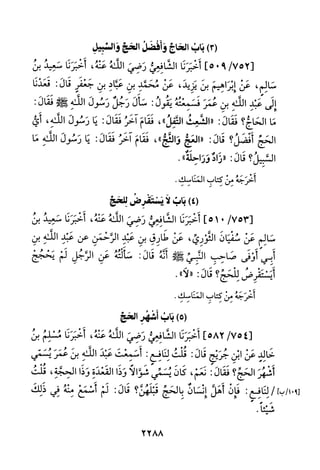 (٣) بَابُ الحَاجُّ وَأَفْضَلُ الحَجِّ وَالسَّبِيلِ
[٥٠٩/٧٥٢] أَخْبَرَنَا الشَّافِعِيُّ رَضِيَ اللَّـهُ عَنْهُ، أَخْبَرَنَا سَعِيدُ بنُ
سَالِمٍ، عَنْ إِبْرَاهِيمَ بنِ يَزِيدَ، عَنْ مُحَمَّدِ بنِ عَبَّادِ بنِ جَعْفَرٍ قَالَ: قَعَدْنَا
إِلَى عَبْدِ اللَّـهِ بنِ عُمَرَ فَسَمِعْتُهُ يَقُولُ: سَأَلَ رَجُلٌ رَسُولَ اللَّـهِ ﷺ فَقَالَ:
مَا الحَاجُّ؟ فَقَالَ: «الشَّعِثُ التَّفِلُ»، فَقَامَ آخَرُ فَقَالَ: يَا رَسُولَ اللَّـهِ، أَيُّ
الحَجِّ أَفْضَلُ؟ قَالَ: «العَجُّ وَالثَّجُّ»، فَقَامَ آخَرُ فَقَالَ: يَا رَسُولَ اللَّـهِ مَا
السَّبِيلُ؟ قَالَ: «زَادٌ وَرَاحِلَةٌ».
أَخْرَجَهُ مِنْ كِتَابِ المَنَاسِكِ.
(٤) بَابُ لاَ يَسْتَقْرِضُ لِلحَجِّ
[٥١٠/٧٥٣] أَخْبَرَنَا الشَّافِعِيُّ رَضِيَ اللَّـهُ عَنْهُ، أَخْبَرَنَا سَعِيدُ بنُ
سَالِمٍ عَنْ سُفْيَانَ الثَّوْرِيِّ، عَنْ طَارِقِ بنِ عَبْدِ الرَّحْمَنِ عن عَبْدِ اللَّـهِ بنِ
أَبِي أَوْفَى صَاحِبِ النبِيِّ ﷺ أَنَّهُ قَالَ: سَأَلْتُهُ عَنِ الرَّجُلِ لَمْ يَحْجُجْ
أَيَسْتَقْرِضُ لِلْحَجِّ؟ قَالَ: «لاَ».
أَخْرَجَهُ مِنْ كِتَابِ المَنَاسِكِ.
(٥) بَابُ أَشْهُرِ الحَجِّ
[٥٨٢/٧٥٤] أَخْبَرَنَا الشَّافِعِيُّ رَضِيَ اللَّـهُ عَنْهُ، أَخْبَرَنَا مُسْلِمُ بنُ
خَالِدٍ عَنْ ابْنِ جُرَيْجٍ قَالَ: قُلْتُ لِنَافِعٍ: أَسَمِعْتَ عَبْدَ اللَّـهِ بنَ عُمَرَ يُسَمِّي
أَشْهُرَ الحَجِّ؟ فَقَالَ: نَعَمْ، كَانَ يُسَمِّي شَوَّالاً وَذَا القَعْدَةِ وَذَا الحِجَّةِ، قُلْتُ
[١٠٩/ب] / لِنَافِعٍ: فَإِنْ أَهَلَّ إِنْسَانٌ بِالحَجِّ قَبْلَهُنَّ؟ قَالَ: لَمْ أَسْمَعْ مِنْهُ فِي ذَلِكَ
شَيْئاً.
٢٢٨٨